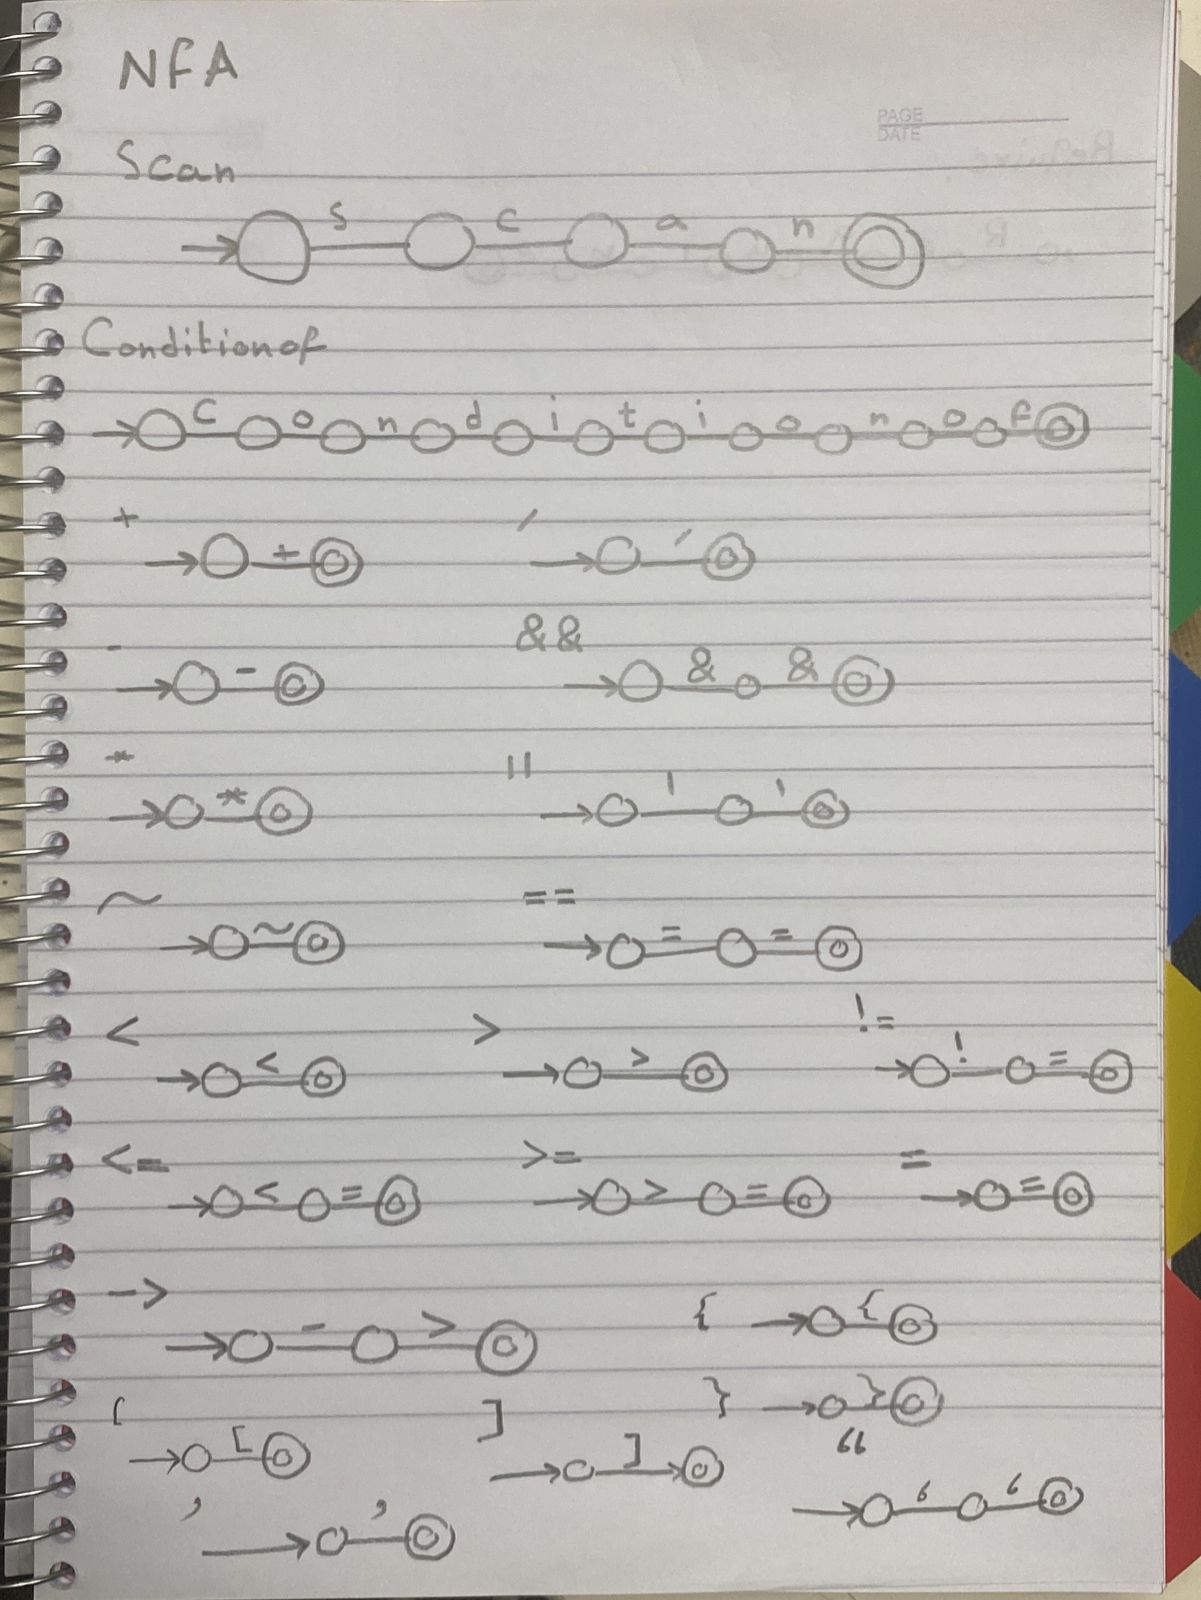 NFA
PAGE
DATE
Scan
S c a n
Conditionof
C o n d i t i o n o f
+ /
+ /
- &&
- & &
* ||
* | |
~ ==
~ = =
< > !=
< > ! =
<= >= =
< = > = =
-> { {
- >
[ ] } }
[ ] “
‘ ‘
, ,